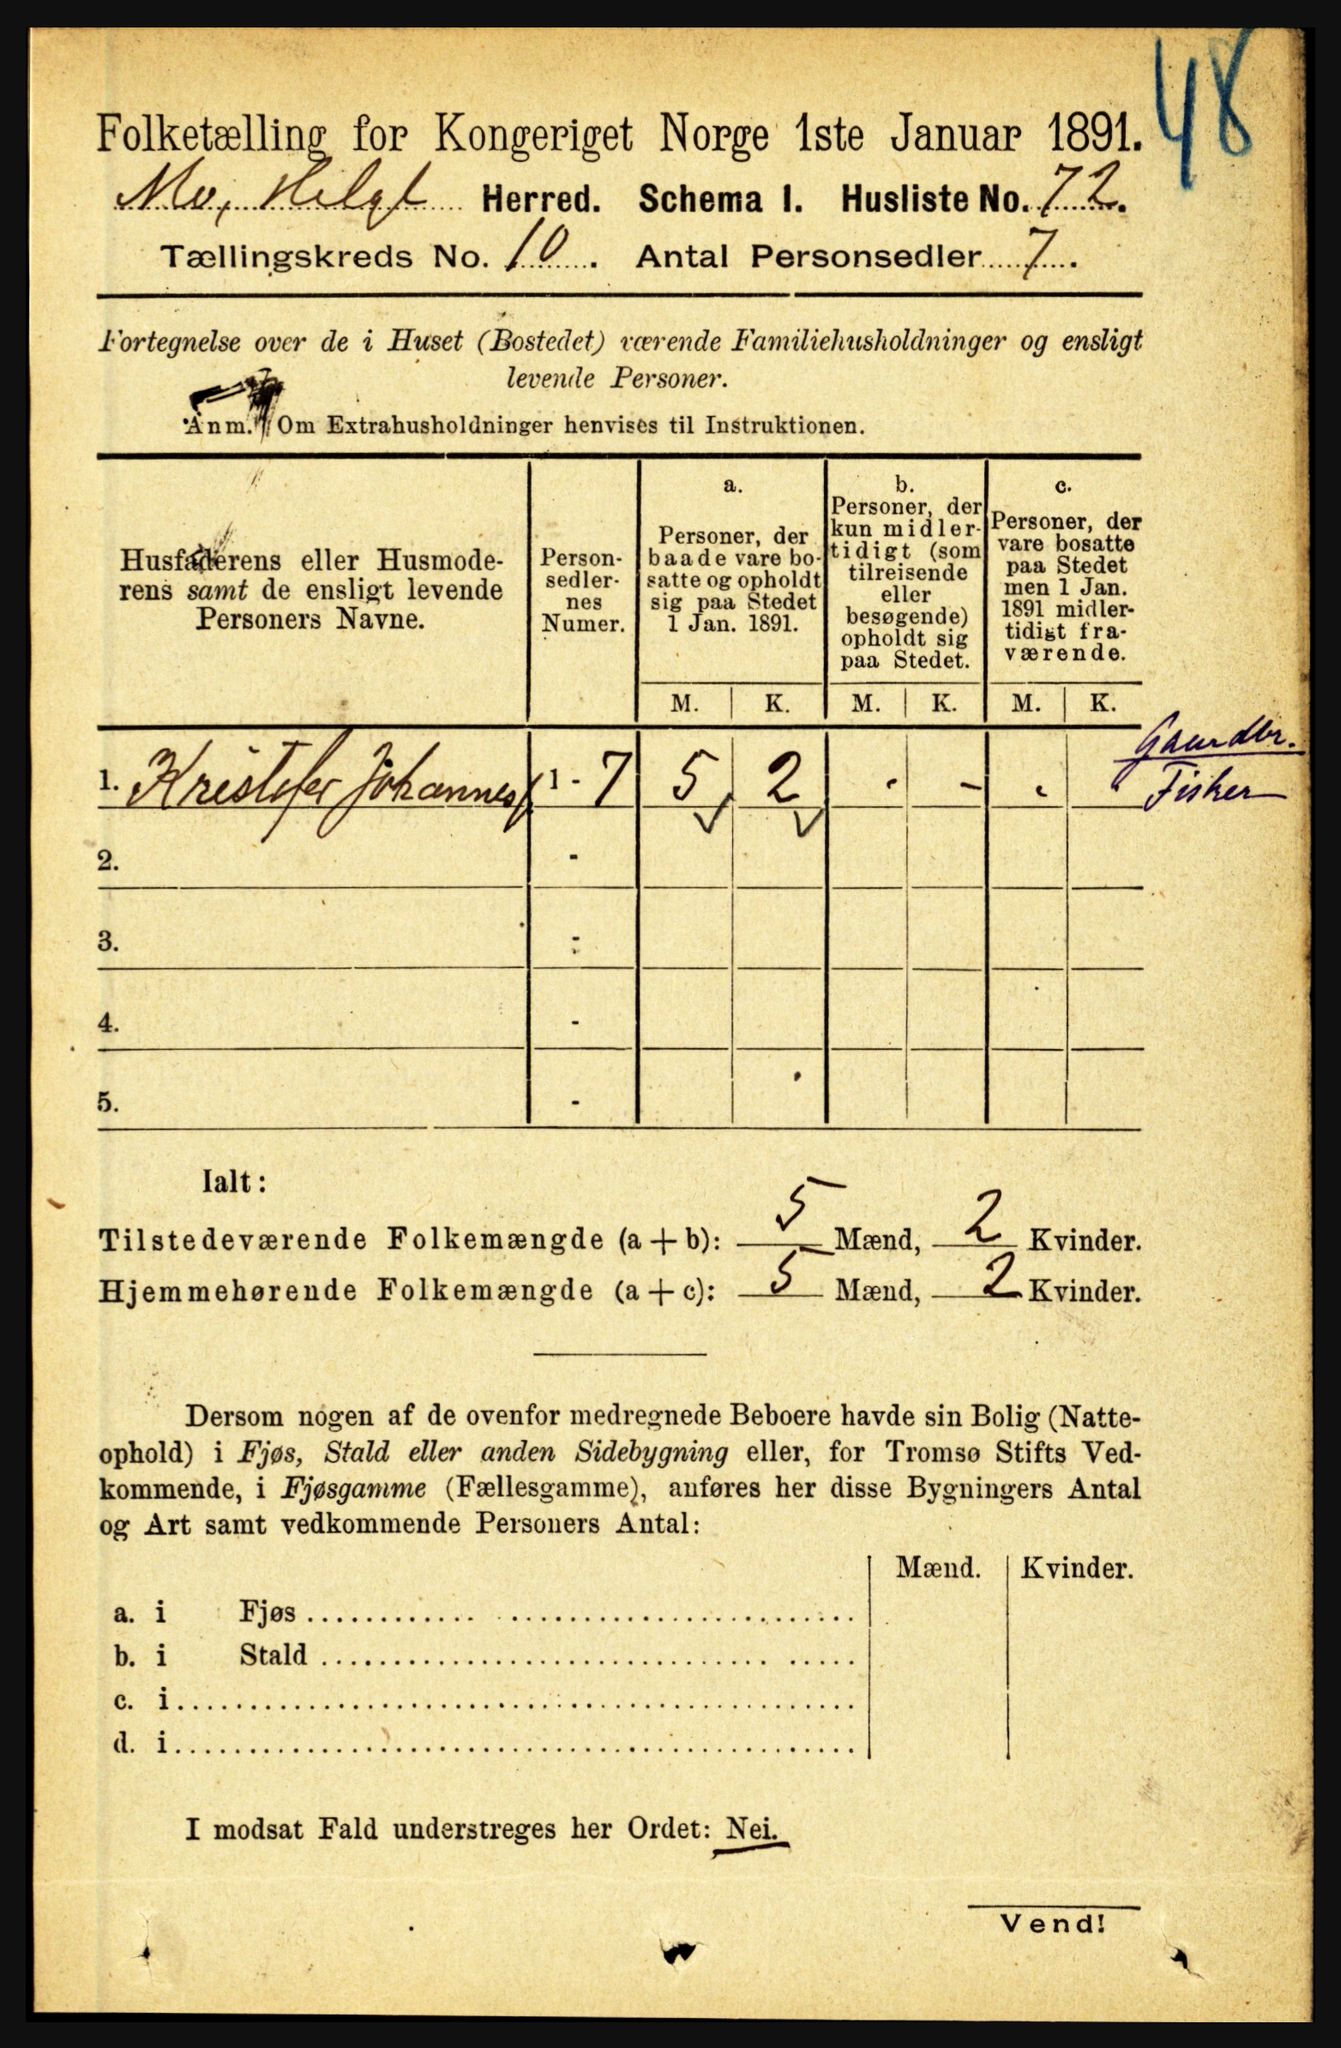 48
Folketælling for Kongeriget Norge 1ste Januar 1891.
Mo, Helgl Herred. Schema I. Husliste No. 72.
Tællingskreds No. 10. Antal Personsedler 7.
Fortegnelse over de i Huset (Bostedet) værende Familiehusholdninger og ensligt
levende Personer.
Anm. Om Extrahusholdninger henvises til Instruktionen.
Husfaderens eller Husmode-
rens samt de ensligt levende
Personers Navne.
Person-
sedler-
nes
Numer.
a.
Personer, der
baade vare bo-
satte og opholdt
sig paa Stedet
1 Jan. 1891.
b.
Personer, der
kun midler-
tidigt (som
tilreisende
eller
besøgende)
opholdt sig
paa Stedet.
c.
Personer, der
vare bosatte
paa Stedet
men 1 Jan.
1891 midler-
tidigt fra-
værende.
M. K. M. K. M. K.
Gaardbr.
1. Kristofer Johannes 1 - 7 5 2 - - - - Fisker
2. -
3. -
4. -
5. -
Ialt:
Tilstedeværende Folkemængde (a + b): 5 Mænd, 2 Kvinder.
Hjemmehørende Folkemængde (a + c): 5 Mænd, 2 Kvinder.
Dersom nogen af de ovenfor medregnede Beboere havde sin Bolig (Natte-
ophold) i Fjøs, Stald eller anden Sidebygning eller, for Tromsø Stifts Ved-
kommende, i Fjøsgamme (Fællesgamme), anføres her disse Bygningers Antal
og Art samt vedkommende Personers Antal:
Mænd. Kvinder.
a. i Fjøs
b. i Stald
c. i
d. i
I modsat Fald understreges her Ordet: Nei.
Vend!